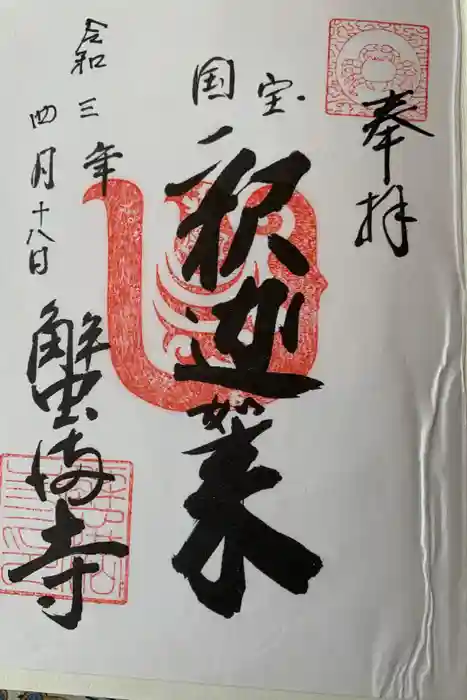 奉拝
国宝
釈迦如来
令和三年
四月十八日
蟹満寺